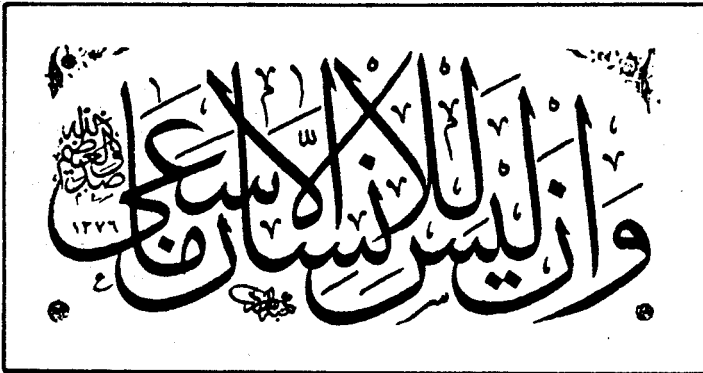 وَأَنْ لَيْسَ لِلْإِنْسَانِ إِلَّا مَا سَعَىٰ
صدق الله العظيم
١٣٧٦